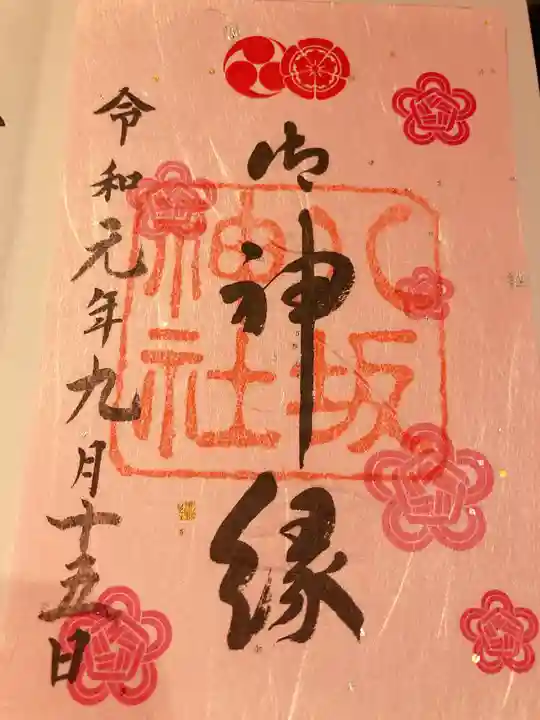 御神縁
八坂神社
令和元年九月十五日